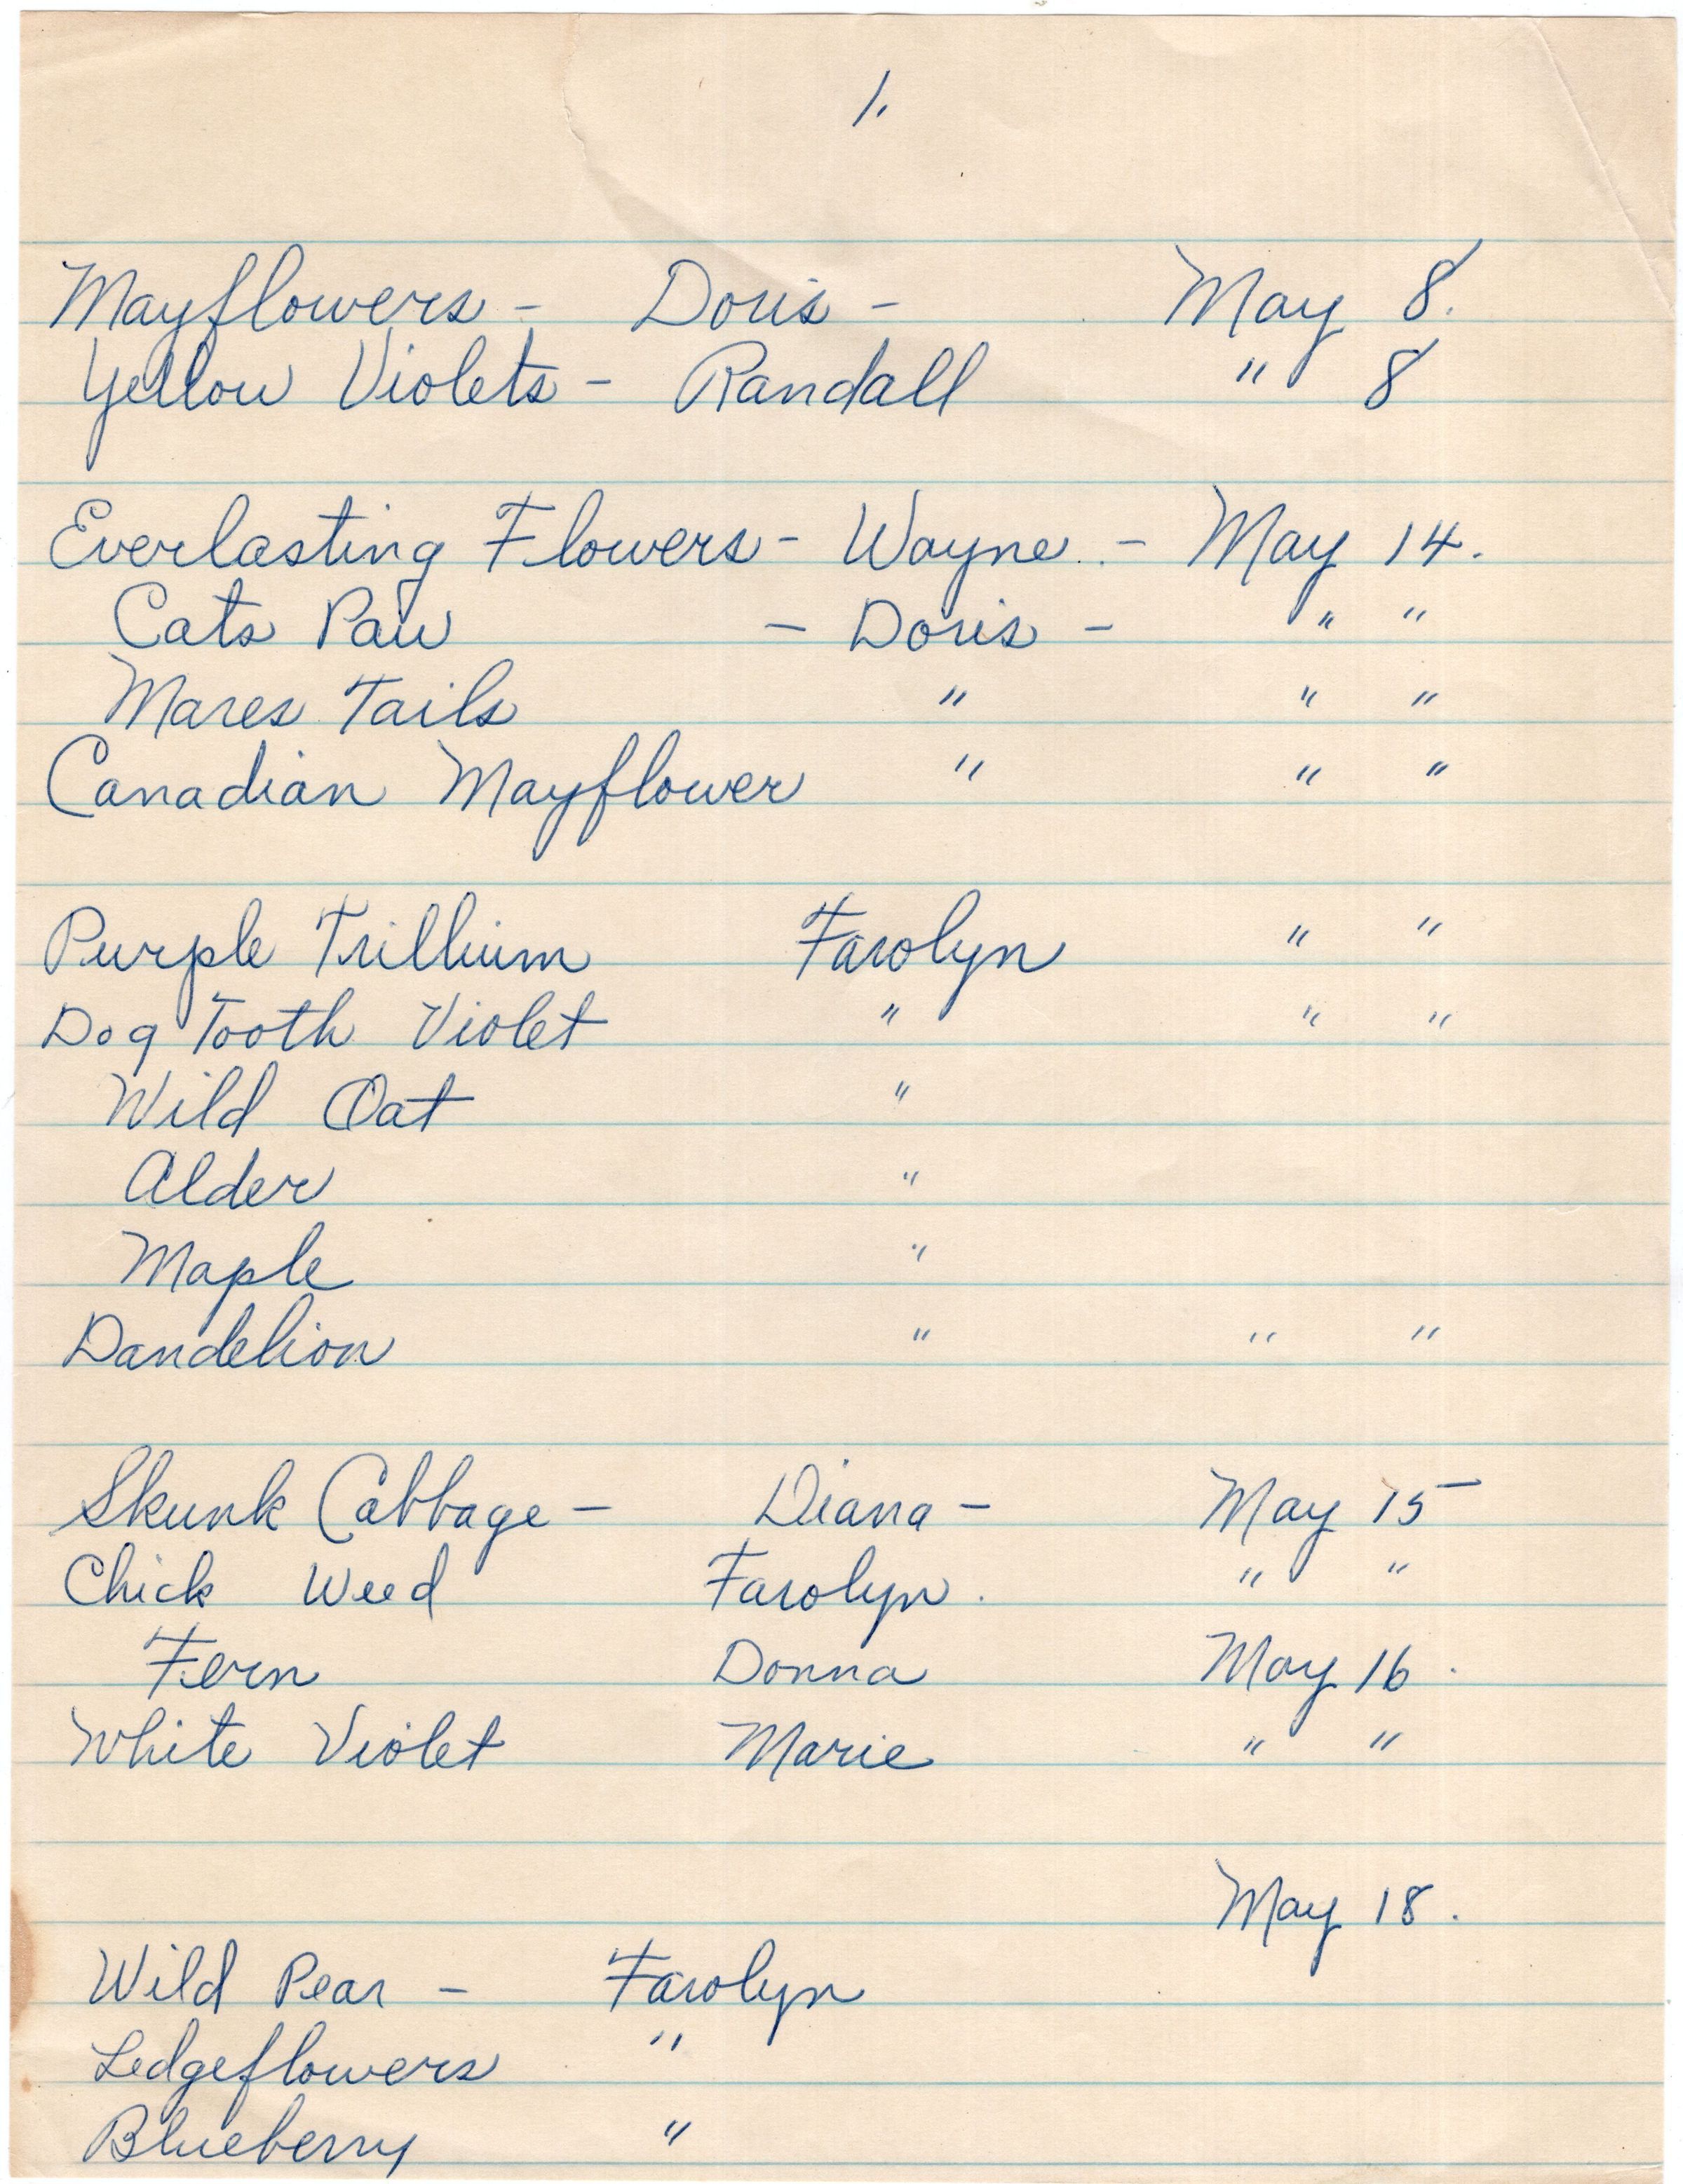 1.
Mayflowers - Doris - May 8.
Yellow Violets - Randall " 8
Everlasting Flowers - Wayne - May 14.
Cats Paw - Doris - " "
Mares Tails " " "
Canadian Mayflower " " "
Purple Trillium Farolyn " "
Dog Tooth Violet " " "
Wild Oat "
Alder "
Maple "
Dandelion " " "
Skunk Cabbage - Diana - May 15
Chick Weed Farolyn. " "
Fern Donna May 16.
White Violet Marie " "
May 18.
Wild Pear - Farolyn
Ledgeflowers "
Blueberry "